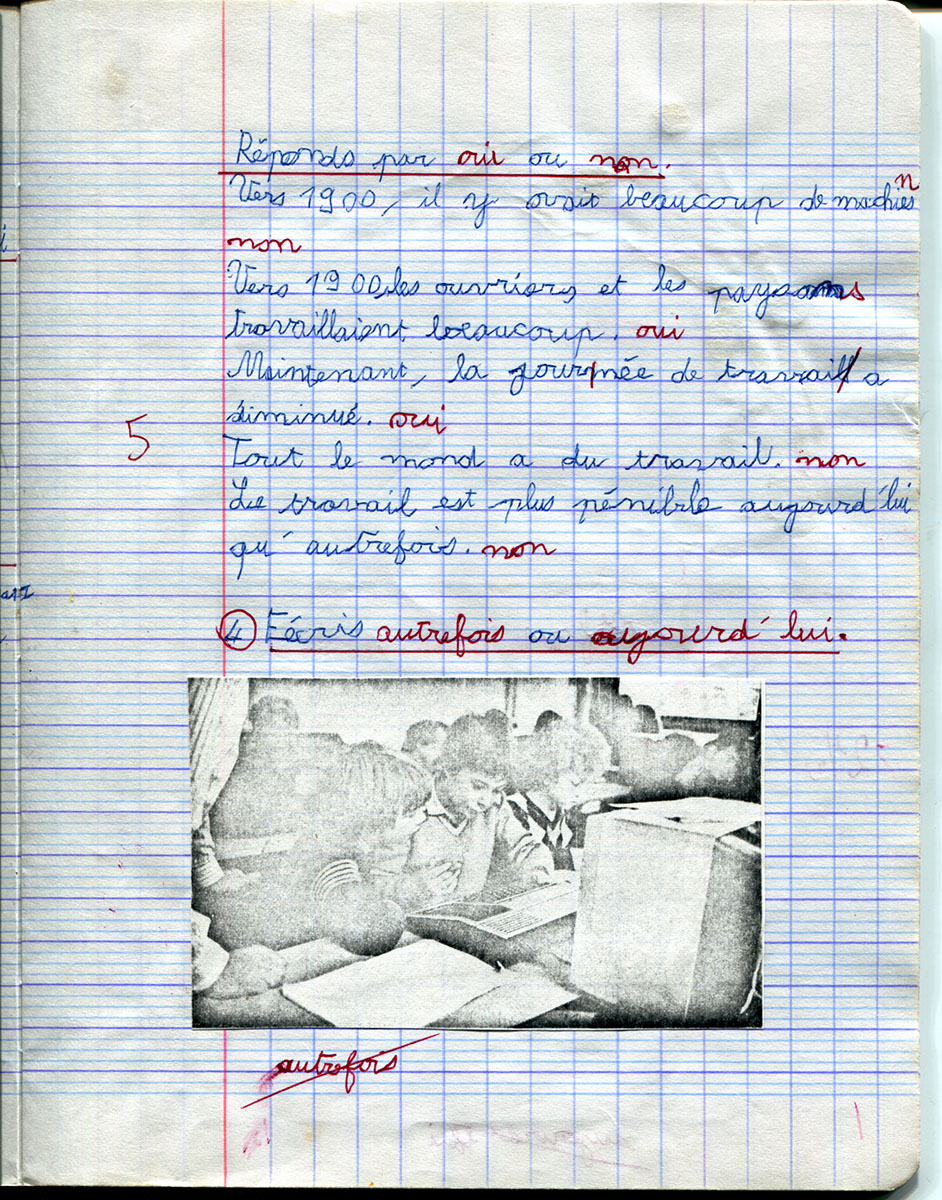 Réponds par oui ou non.
Vers 1900, il y avait beaucoup de machies
n
non
Vers 1900, les ouvriers et les paysans
travaillaient beaucoup. oui
Maintenant, la journée de travail a
diminué. oui
5
Tout le mond a du travail. non
Le travail est plus pénible aujourd'hui
qu'autrefois. non
4 Écris autrefois ou aujourd'hui.
autrefois
1